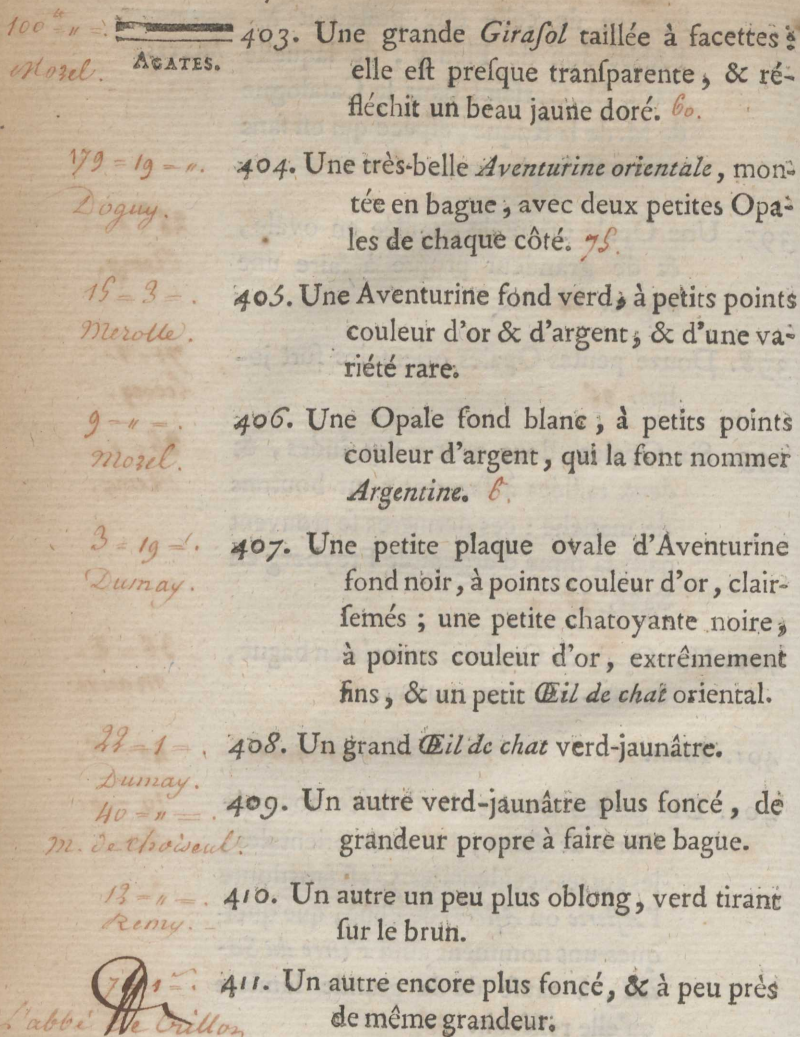 100 ᵗᵗ = " = . 403. Une grande Giraſol taillée à facettes ;
Morel. AGATES. elle eſt preſque tranſparente, & ré-
fléchit un beau jaune doré. 60.
179 = 19 = ". 404. Une très-belle Aventurine orientale, mon-
Doguy. tée en bague, avec deux petites Opa-
les de chaque côté. 75.
15 = 3 = . 405. Une Aventurine fond verd, à petits points
Merolle. couleur d'or & d'argent, & d'une va-
riété rare.
9 = " = . 406. Une Opale fond blanc, à petits points
Morel. couleur d'argent, qui la font nommer
Argentine. 6.
3 = 19 = . 407. Une petite plaque ovale d'Aventurine
Dumay. fond noir, à points couleur d'or, clair-
ſemés ; une petite chatoyante noire,
à points couleur d'or, extrêmement
fins, & un petit Œil de chat oriental.
22 = 1 = . 408. Un grand Œil de chat verd-jaunâtre.
Dumay.
40 = " = . 409. Un autre verd-jaunâtre plus foncé, de
M. de Choiseul. grandeur propre à faire une bague.
12 = " = . 410. Un autre un peu plus oblong, verd tirant
Remy. ſur le brun.
411. Un autre encore plus foncé, & à peu près
L'abbé de même grandeur.